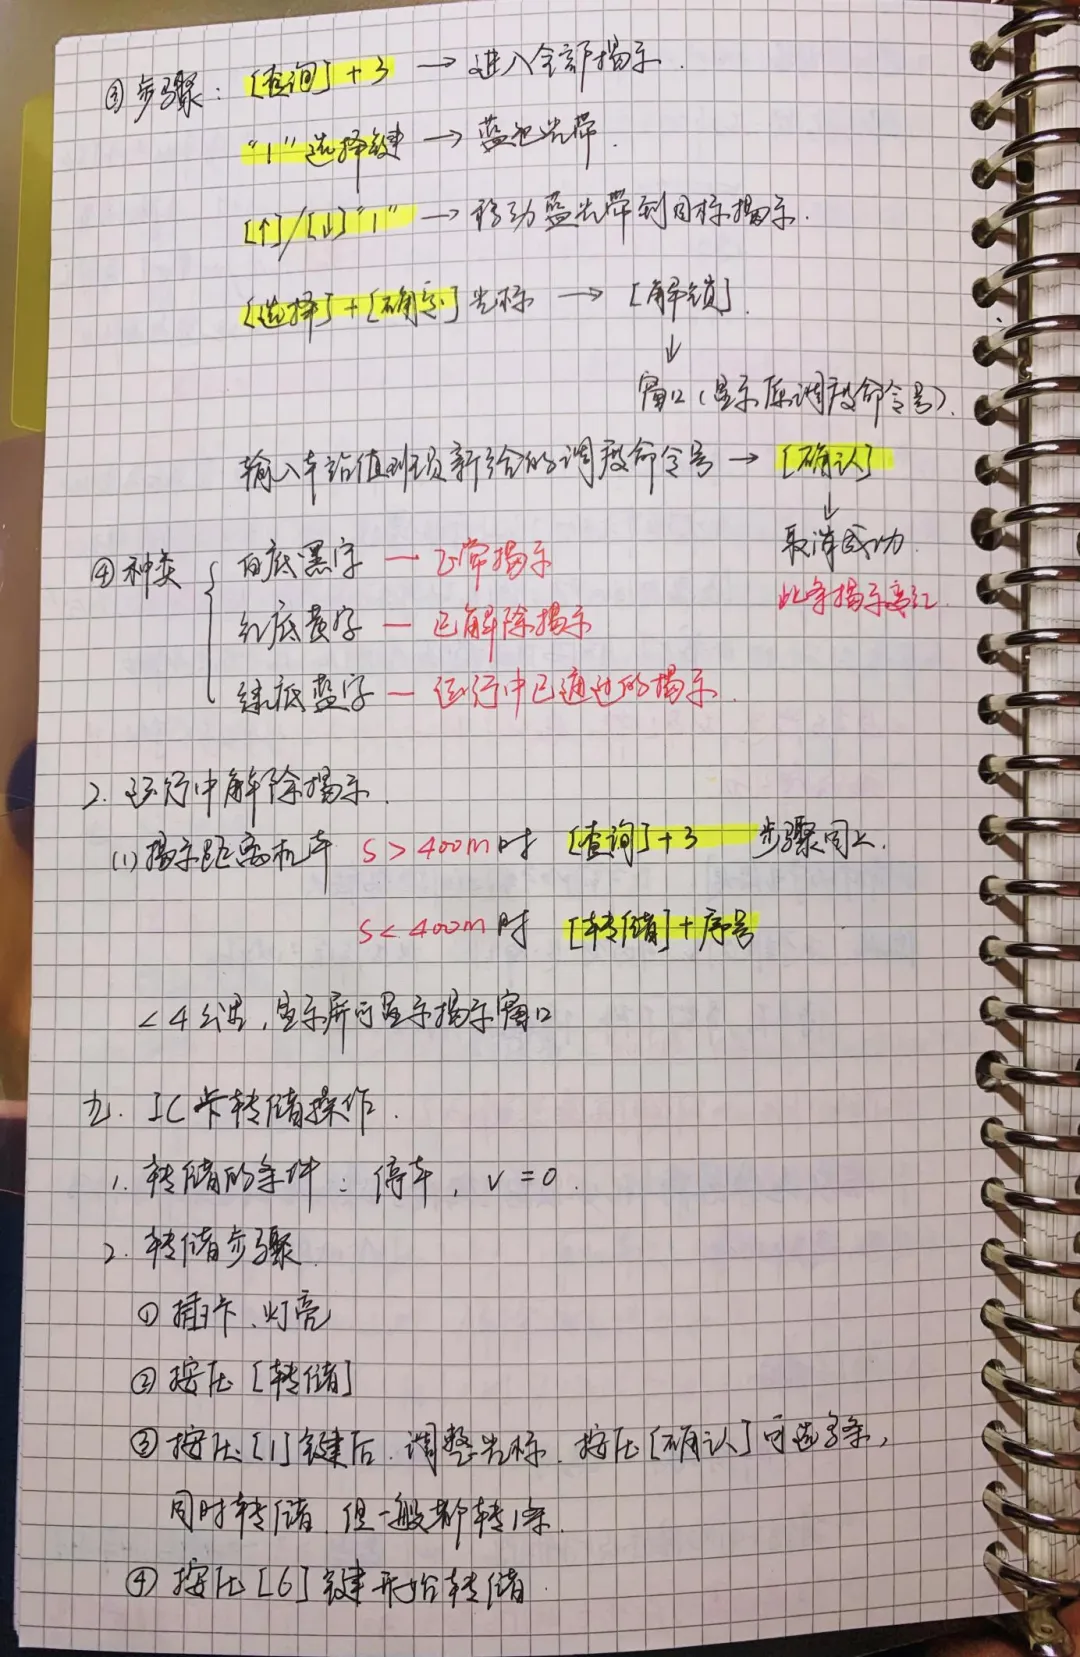 ③步骤：[查询]+3 → 进入全部揭示.
"1"选择键 → 蓝色光带.
[↑]/[↓]"1" → 移动蓝光带到目标揭示.
[选择]+[确定]光标 → [解锁].
↓
窗口(显示原调度命令号).
输入车站值班员新给的调度命令号 → [确认]
↓
取消成功.
此条揭示变红.
④种类 { 白底黑字 — 正常揭示
红底黄字 — 已解除揭示
绿底蓝字 — 运行中已通过的揭示.
2. 运行中解除揭示.
(1) 揭示距离机车 S>400m时 [查询]+3 步骤同上.
S<400m时 [转储]+序号
<4公里,显示屏可显示揭示窗口
九. IC卡转储操作.
1. 转储的条件: 停车, v=0.
2. 转储步骤
①插卡、灯亮
②按压[转储]
③按压[1]键后.调整光标.按压[确认]可选多条,
同时转储.但一般都转1条.
④按压[6]键开始转储.